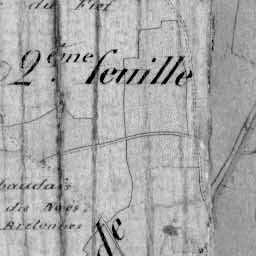 du Fief
2ème feuille
baudais
des Noës
Bretonnes
de